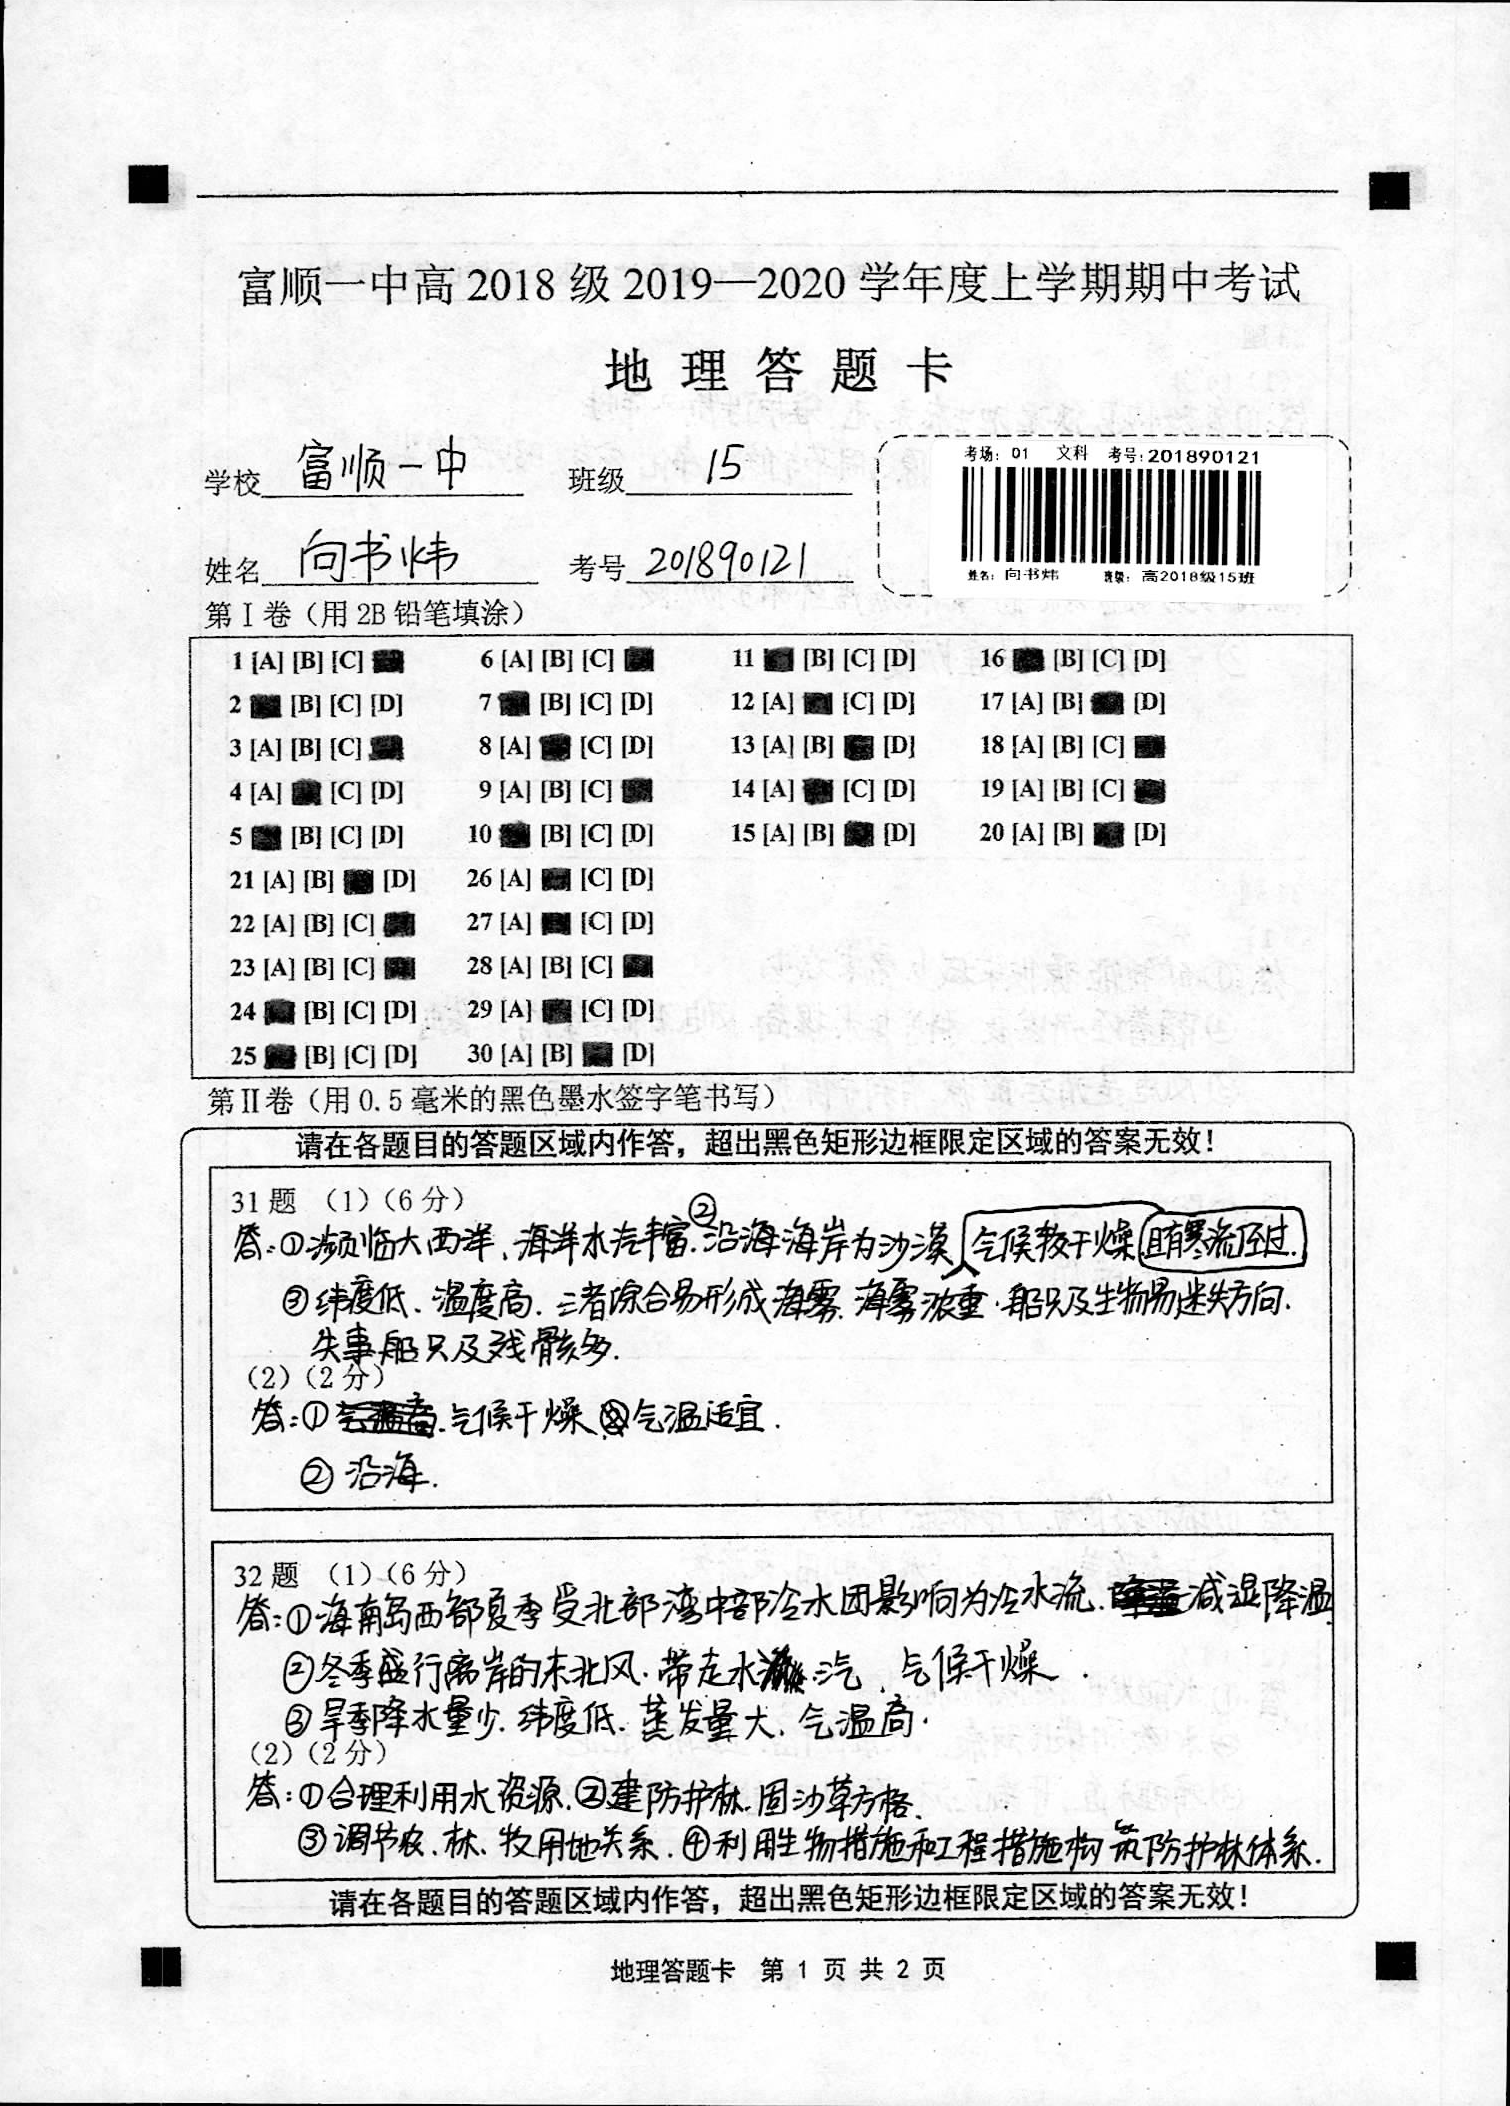 富顺一中高2018级2019—2020学年度上学期期中考试
地理答题卡
学校 富顺一中 班级 15
考场：01 文科 考号：201890121
姓名 向书炜 考号 201890121
姓名：向书炜 班级：高2018级15班
第Ⅰ卷（用2B铅笔填涂）
1 [A] [B] [C] 6 [A] [B] [C] 11 [B] [C] [D] 16 [B] [C] [D]
2 [B] [C] [D] 7 [B] [C] [D] 12 [A] [C] [D] 17 [A] [B] [D]
3 [A] [B] [C] 8 [A] [C] [D] 13 [A] [B] [D] 18 [A] [B] [C]
4 [A] [C] [D] 9 [A] [B] [C] 14 [A] [C] [D] 19 [A] [B] [C]
5 [B] [C] [D] 10 [B] [C] [D] 15 [A] [B] [D] 20 [A] [B] [D]
21 [A] [B] [D] 26 [A] [C] [D]
22 [A] [B] [C] 27 [A] [C] [D]
23 [A] [B] [C] 28 [A] [B] [C]
24 [B] [C] [D] 29 [A] [C] [D]
25 [B] [C] [D] 30 [A] [B] [D]
第Ⅱ卷（用0.5毫米的黑色墨水签字笔书写）
请在各题目的答题区域内作答，超出黑色矩形边框限定区域的答案无效！
31题 （1）（6分）
答：①濒临大西洋、海洋水汽丰富.②沿海海岸为沙漠 气候较干燥 且有寒流经过.
③纬度低、温度高.三者综合易形成海雾.海雾浓重.船只及生物易迷失方向.
失事船只及残骸多.
（2）（2分）
答：① 气候干燥 气温适宜.
② 沿海.
32题 （1）（6分）
答：①海南岛西部夏季受北部湾中部冷水团影响为冷水流. 减湿降温
②冬季盛行离岸的东北风.带走水汽、气候干燥.
③旱季降水量少.纬度低.蒸发量大.气温高.
（2）（2分）
答：①合理利用水资源.②建防护林.固沙草方格.
③调节农、林、牧用地关系.④利用生物措施和工程措施构筑防护林体系.
请在各题目的答题区域内作答，超出黑色矩形边框限定区域的答案无效！
地理答题卡 第1页共2页